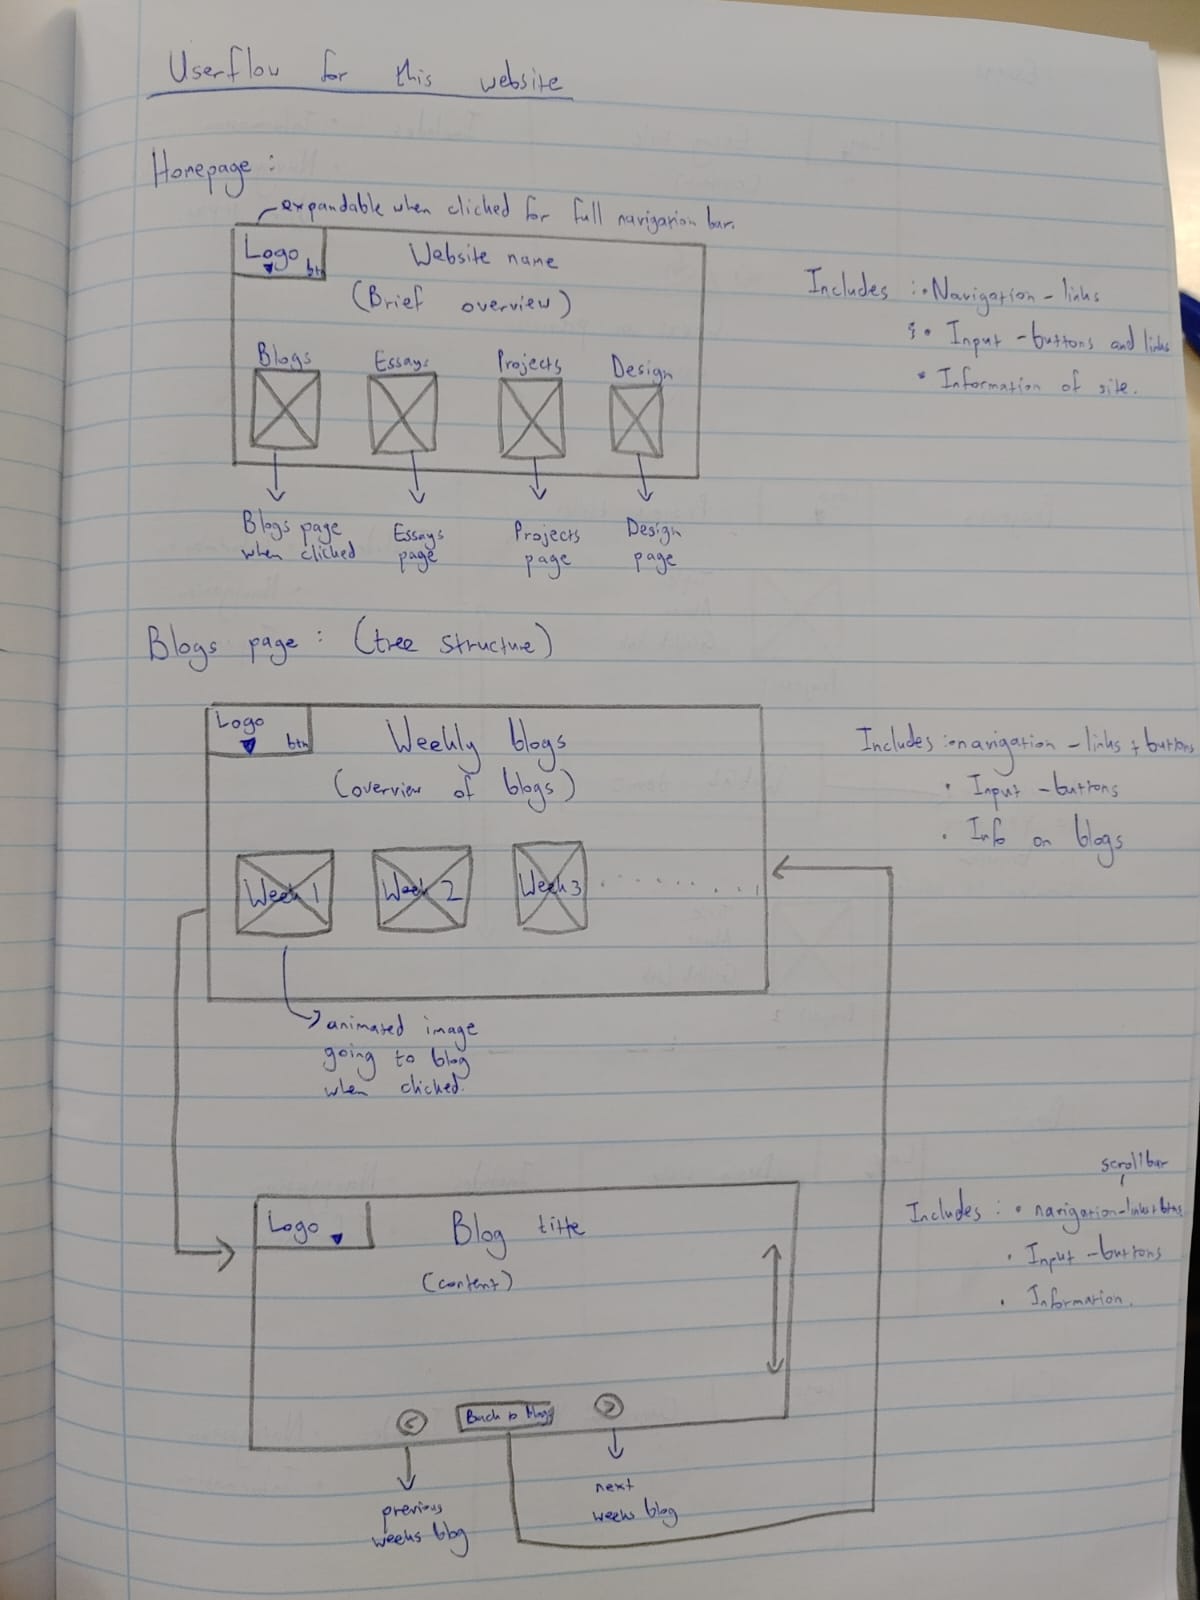 Userflow for this website
Homepage :
expandable when clicked for full navigation bar.
Logo btn
Website name
(Brief overview)
Blogs Essays Projects Design
Blogs page when clicked
Essays page
Projects page
Design page
Includes : • Navigation - links
• Input - buttons and links
• Information of site.
Blogs page : (tree structure)
Logo btn
Weekly blogs
(overview of blogs)
Week 1 Week 2 Week 3 . . . . . . . .
animated image
going to blog
when clicked.
Includes : • navigation - links + buttons
• Input - buttons
• Info on blogs
Logo
Blog title
(content)
< Back to blogs >
previous
weeks blog
next
weeks blog
scrollbar
Includes : • navigation - links + btns
• Input - buttons
• Information.